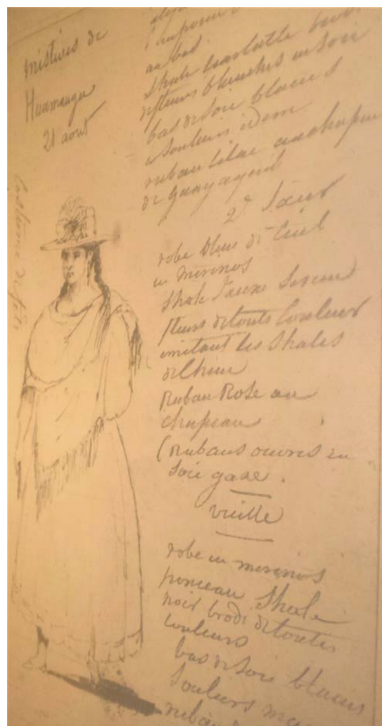 mistives de
Huamanga
21 aout
Costume de fête
au bas.
Shale
de fleurs blanches en soie
bas de soie blancs
Souliers idem
ruban lilas au chapeau
de Guayaquil
2e Soeur
robe bleu de Ciel
en merinos
Shale Jaune Serein
fleurs de toutes Couleurs
imitant les Shales
de Chine
Ruban Rose au
chapeau
(Rubans ouvres en
Soie gaze.
vieille
robe en merinos
ponceau Shale
noir brodé de toutes
couleurs
bas de Soie blancs
Souliers
ruban